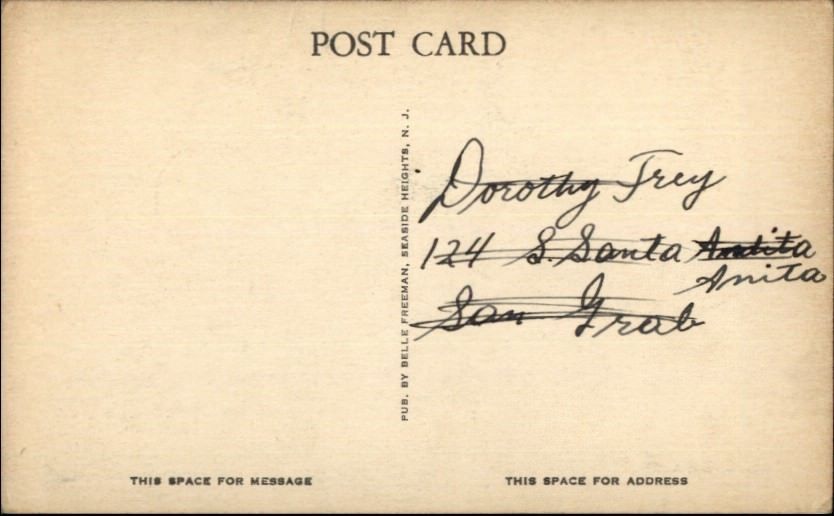 POST CARD
PUB. BY BELLE FREEMAN, SEASIDE HEIGHTS, N. J.
Dorothy Frey
124 S. Santa Andita
Anita
San Grab
THIS SPACE FOR MESSAGE
THIS SPACE FOR ADDRESS